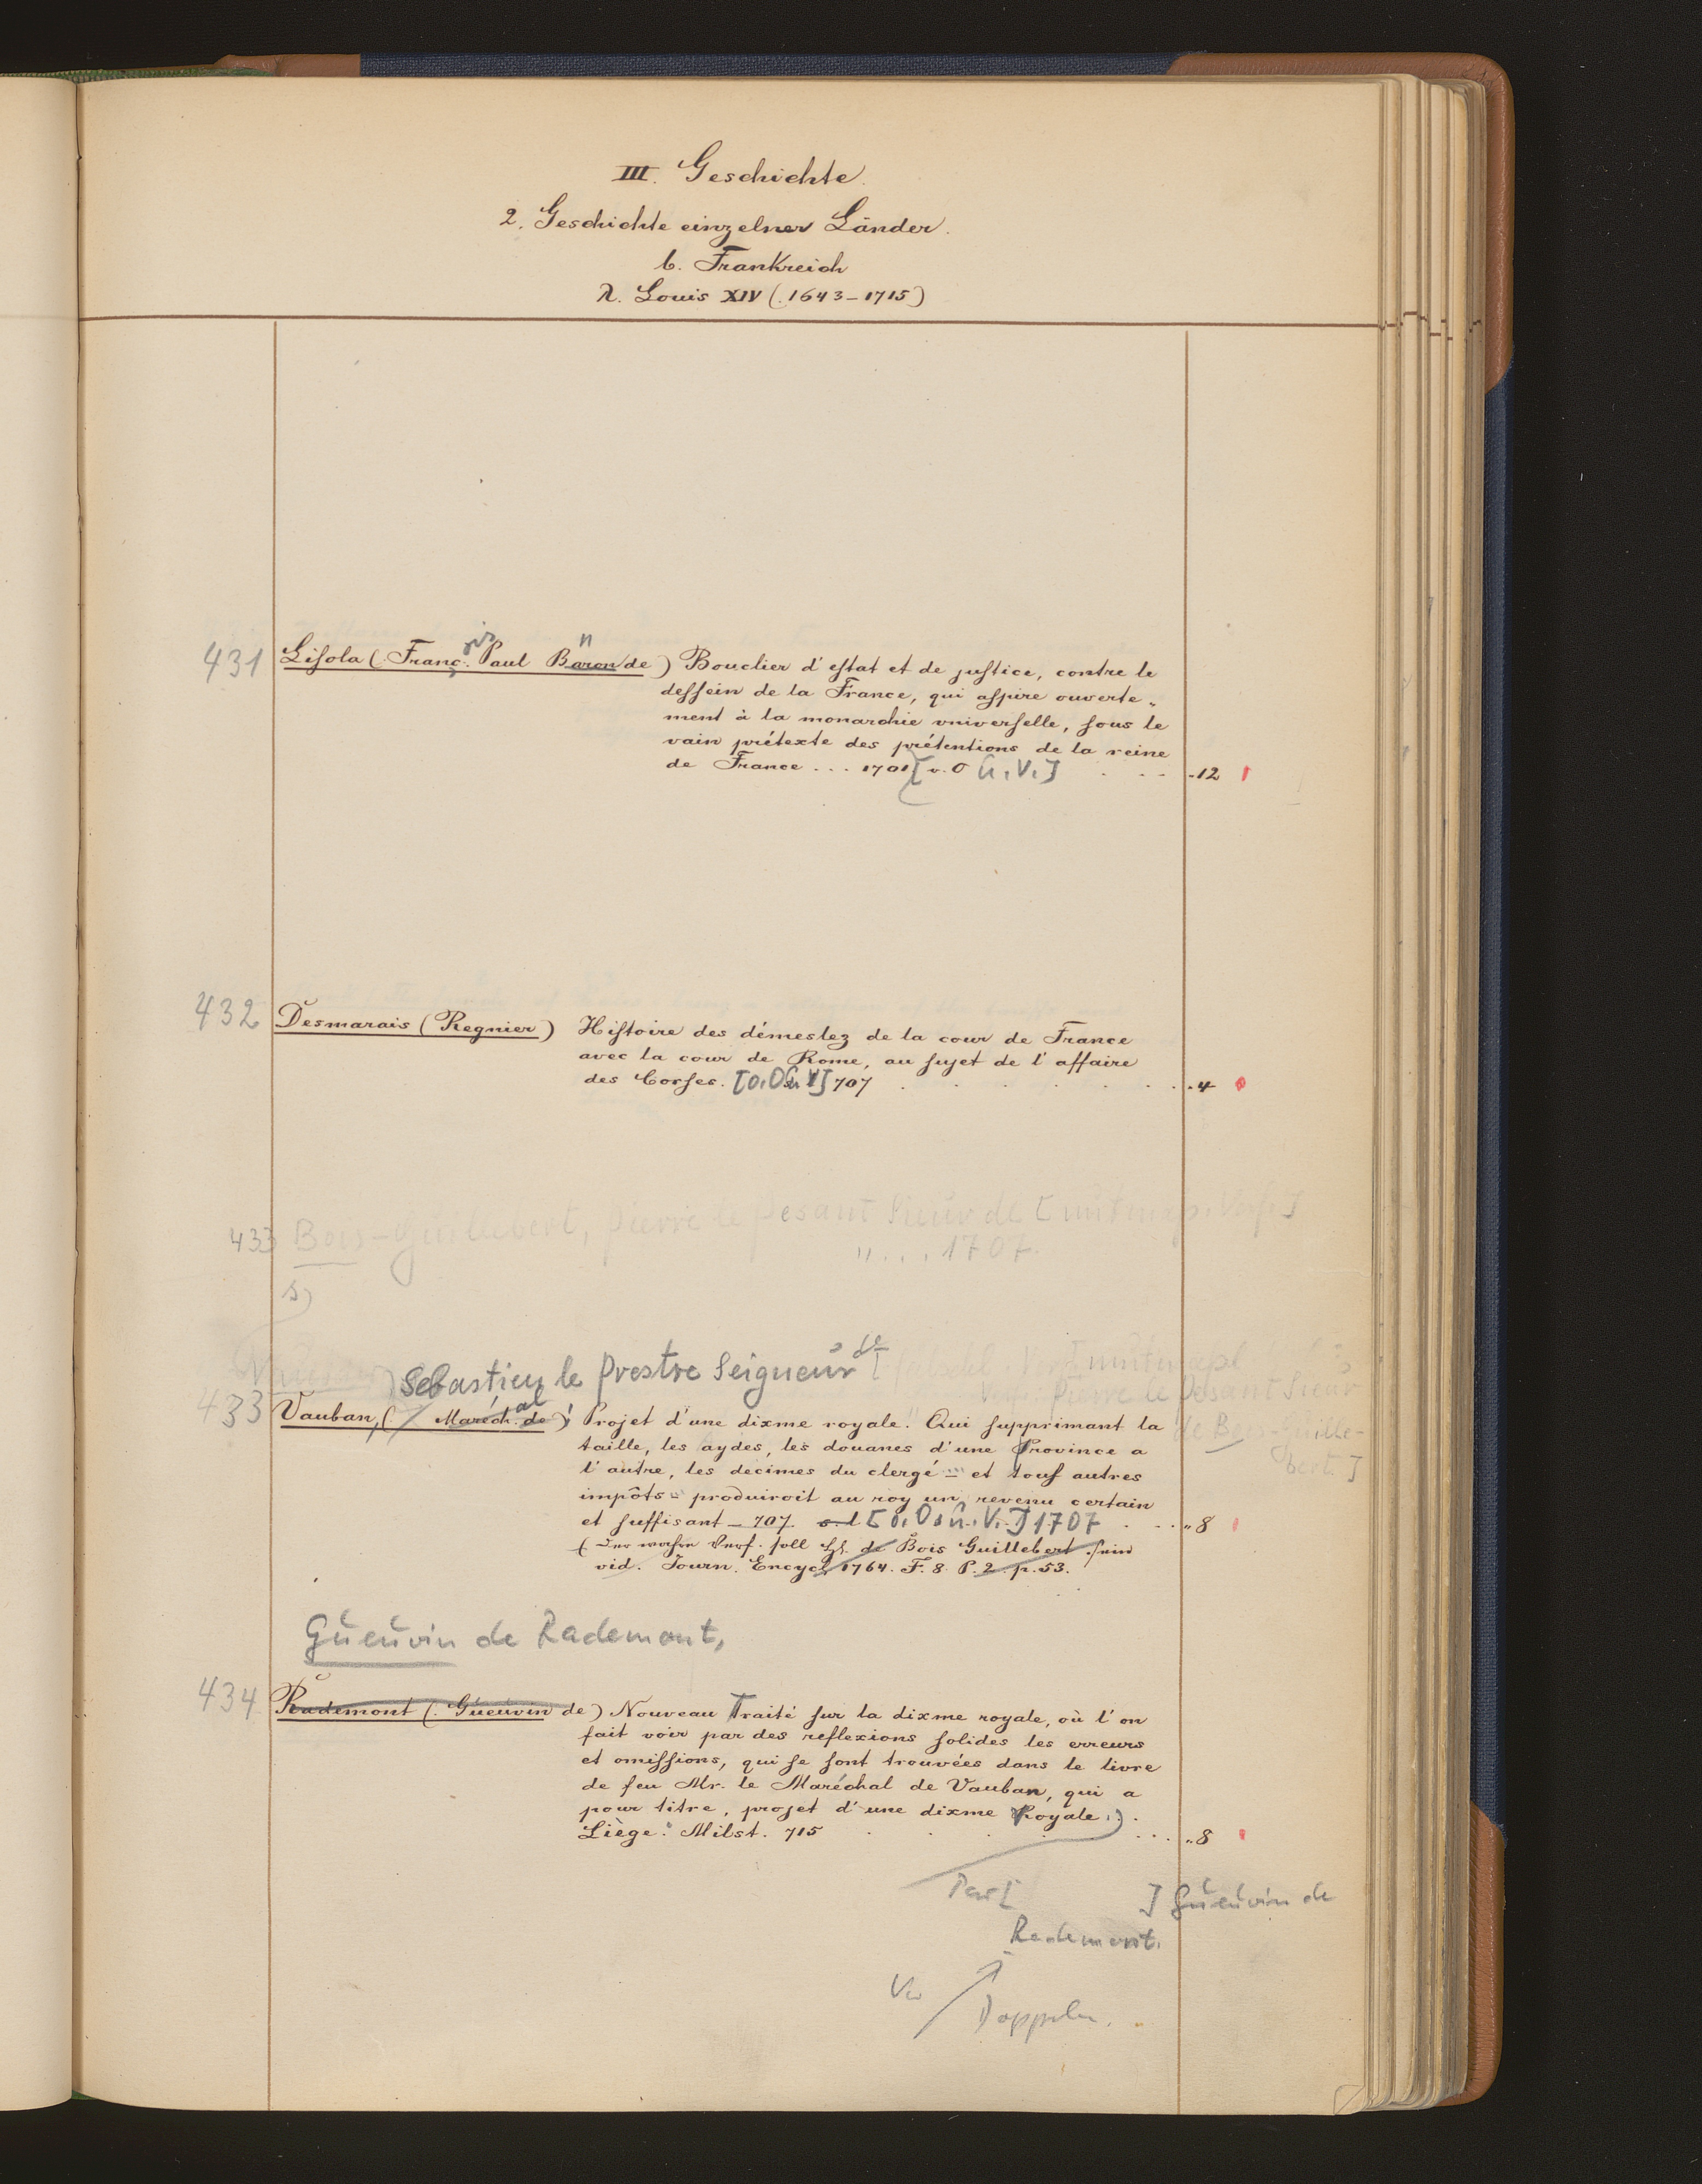 III. Geschichte.
2. Geschichte einzelner Länder.
b. Frankreich
λ. Louis XIV (1643-1715)
431 Lisola (Franç. Paul Baron de) Bouclier d'estat et de justice, contre le
dessein de la France, qui aspire ouverte-
ment à la monarchie vniverselle, sous le
vain prétexte des prétentions de la reine
de France ... 1701 [v. O û. V.] . . . 12
432 Desmarais (Regnier) Histoire des démeslez de la cour de France
avec la cour de Rome, au sujet de l'affaire
des Corses. [o. O û. V] 707 . . . 4
433 Bois-Guillebert, Pierre le Pesant Sieur de [
" . . . 1707.
s)
Sebastien le Prestre Seigneur de
Verf. Pierre le Pesant Sieur
433 Vauban, (Maréchal de) Projet d'une dixme royale. Qui supprimant la de Bois-Guille-
taille, les aydes, les douanes d'une Province a
bert.]
l'autre, les decimes du clergé et tous autres
impôts produiroit au roy un revenu certain
et suffisant – 707. s. l [o. O. û. V.] 1707 . . . „8
(Der wahre Verf. soll H. de Bois Guillebert sein
vid. Journ. Encycl. 1764. F. 8 P. 2. p. 53.
Gueuvin de Rademont,
434 Rademont (Gueuvin de) Nouveau Traité sur la dixme royale, où l'on
fait voir par des reflexions solides les erreurs
et omissions, qui se sont trouvées dans le livre
de feu Mr. le Maréchal de Vauban, qui a
pour titre, projet d'une dixme Royale.) .
Liège: Milst. 715 . . . „8
Par [ ] Gueuvin de
Rademont.